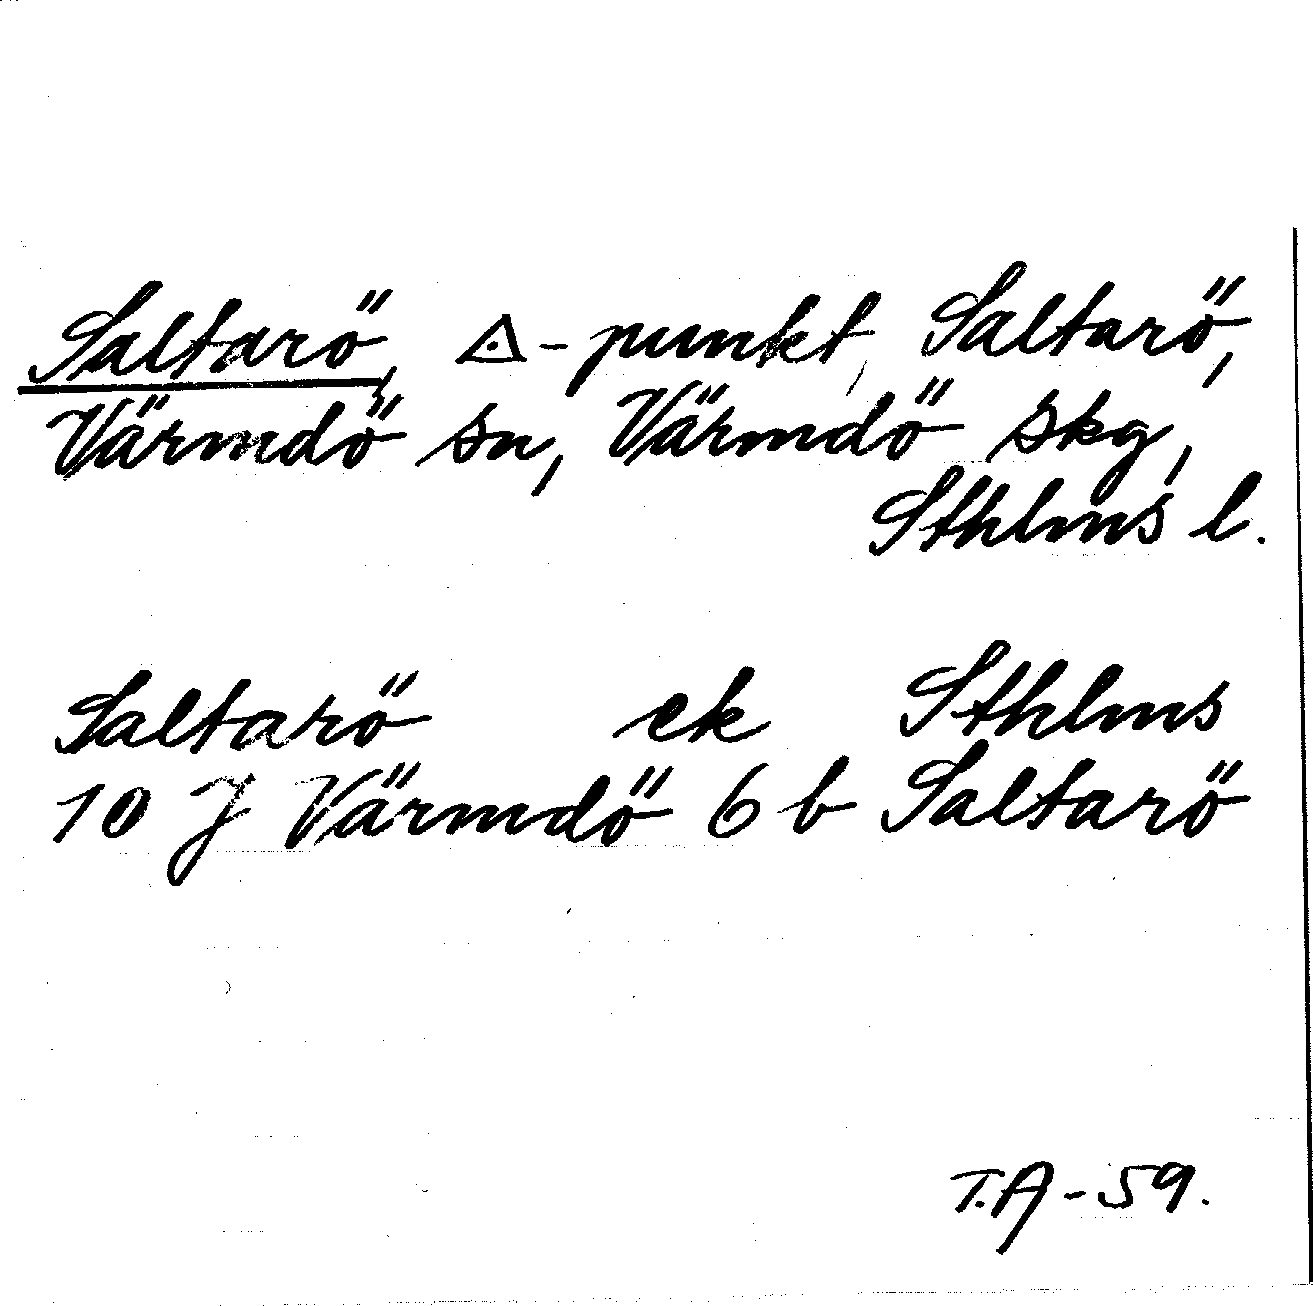 Saltarö, ◬-punkt, Saltarö,
Värmdö sn, Värmdö skg,
Sthlms l.
Saltarö ek Sthlms
10 J Värmdö 6 b Saltarö
T.A-59.